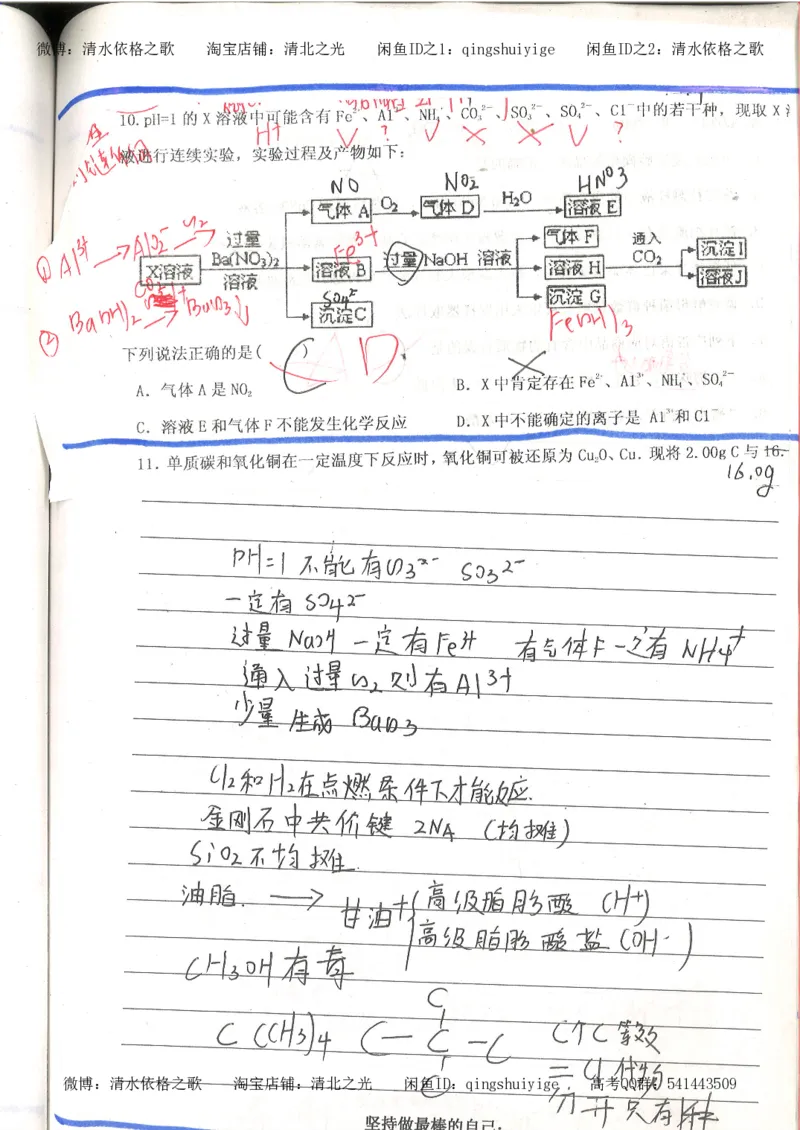 微博：清水依格之歌 淘宝店铺：清北之光 闲鱼ID之1：qingshuiyige 闲鱼ID之2：清水依格之歌
10.pH=1 的 X 溶液中可能含有 Fe²⁺、Al³⁺、NH₄⁺、CO₃²⁻、SO₃²⁻、SO₄²⁻、Cl⁻中的若干种，现取 X 溶
H⁺ √ ? √ × × √ ?
液进行连续实验，实验过程及产物如下：
NO NO₂ HNO3
气体 A O₂ 气体 D H₂O 溶液 E
① Al³⁺ → AlO₂⁻
过量 Fe³⁺ 气体 F 通入 沉淀 I
X溶液 Ba(NO₃)₂ 溶液 B 过量 NaOH 溶液 溶液 H CO₂ 溶液 J
溶液 SO4²⁻ 沉淀 C 沉淀 G
② Ba(OH)₂ → BaCO3↓
Fe(OH)₃
下列说法正确的是( ) C D
A．气体 A 是 NO₂ B．X 中肯定存在 Fe²⁺、Al³⁺、NH₄⁺、SO₄²⁻
C．溶液 E 和气体 F 不能发生化学反应 D．X 中不能确定的离子是 Al³⁺和 Cl⁻
11．单质碳和氧化铜在一定温度下反应时，氧化铜可被还原为 Cu₂O、Cu．现将 2.00g C 与 16.
16.0g
PH=1 不能有CO3²⁻ SO3²⁻
一定有 SO4²⁻
过量 NaOH 一定有Fe³⁺ 有气体F一定有 NH4⁺
通入过量CO2则有Al³⁺
少量 生成 BaCO3
Cl2和H2在点燃条件下才能反应.
金刚石中共价键 2NA (均摊)
SiO2不均摊
油脂. → 甘油+ 高级脂肪酸 (H⁺)
高级脂肪酸盐 (OH⁻)
CH3OH有毒
C
C(CH3)4 C—C—C 5个C 等效
C 二Cl代物
微博：清水依格之歌 淘宝店铺：清北之光 闲鱼ID：qingshuiyige 高考QQ群：541443509
分开只有1种
坚持做最棒的自己.